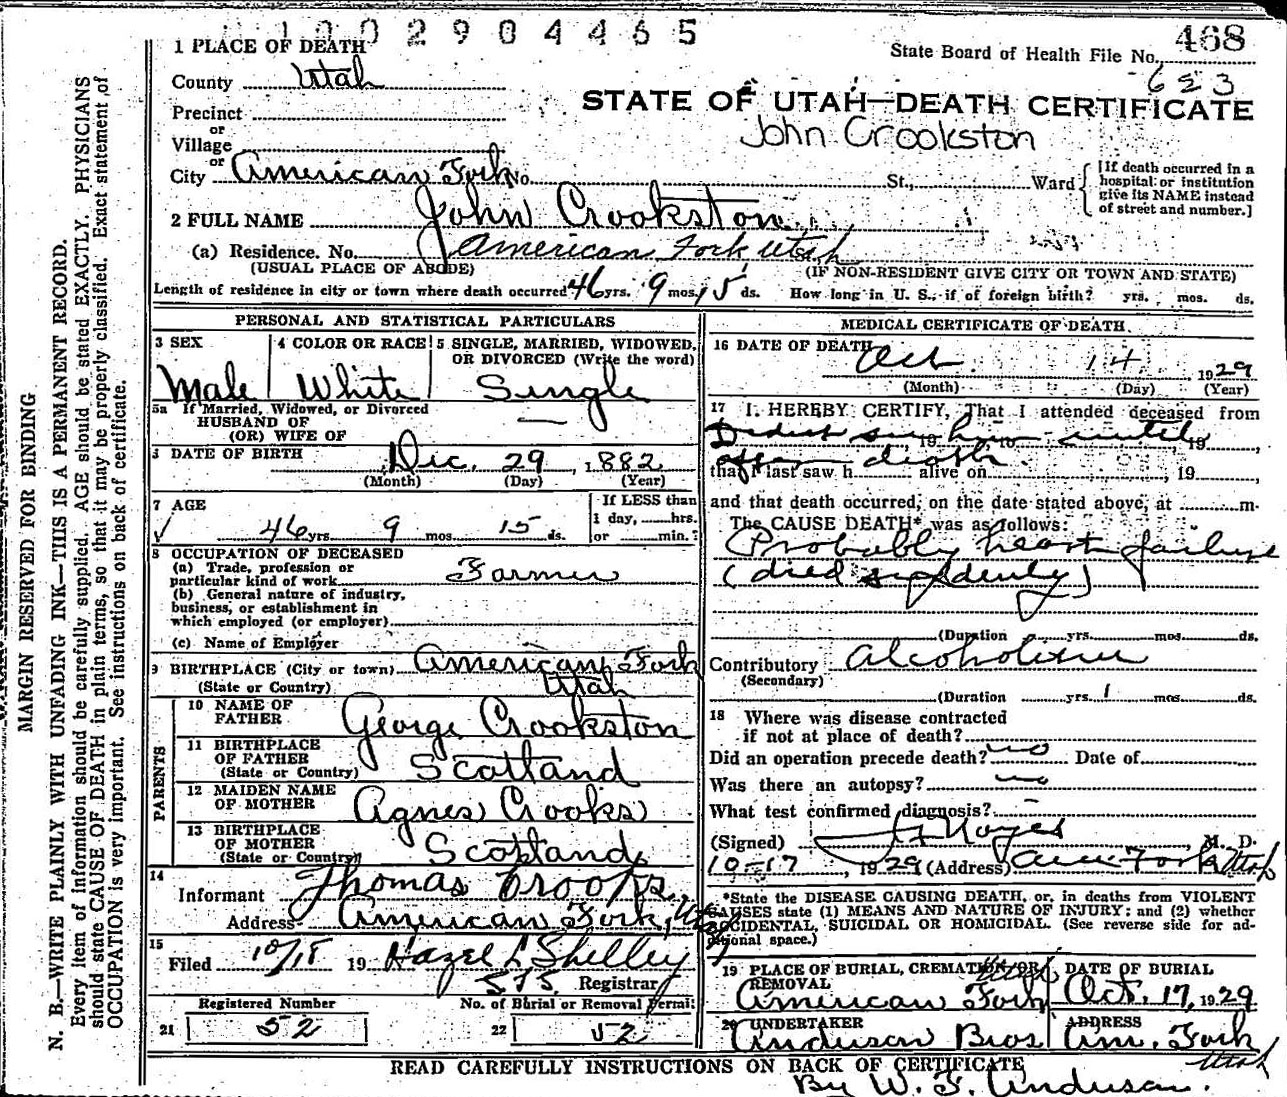 1 0 0 2 9 0 4 4 6 5
State Board of Health File No. 468
623
1 PLACE OF DEATH
County Utah
STATE OF UTAH—DEATH CERTIFICATE
Precinct
or
Village
John Crookston
or
City American Fork No. St., Ward
[If death occurred in a
hospital or institution
give its NAME instead
of street and number.]
2 FULL NAME John Crookston
(a) Residence. No. American Fork Utah
(USUAL PLACE OF ABODE) (IF NON-RESIDENT GIVE CITY OR TOWN AND STATE)
Length of residence in city or town where death occurred 46 yrs. 9 mos. 15 ds. How long in U. S., if of foreign birth? yrs. mos. ds.
PERSONAL AND STATISTICAL PARTICULARS
3 SEX
Male
4 COLOR OR RACE
White
5 SINGLE, MARRIED, WIDOWED,
OR DIVORCED (Write the word)
Single
5a If Married, Widowed, or Divorced
HUSBAND OF
(OR) WIFE OF —
6 DATE OF BIRTH Dec. 29, 1882
(Month) (Day) (Year)
7 AGE
46 yrs. 9 mos. 15 ds.
If LESS than
1 day, hrs.
or min.
8 OCCUPATION OF DECEASED
(a) Trade, profession or
particular kind of work Farmer
(b) General nature of industry,
business, or establishment in
which employed (or employer)
(c) Name of Employer
9 BIRTHPLACE (City or town) American Fork
(State or Country) Utah
PARENTS
10 NAME OF
FATHER George Crookston
11 BIRTHPLACE
OF FATHER
(State or Country) Scotland
12 MAIDEN NAME
OF MOTHER Agnes Crooks
13 BIRTHPLACE
OF MOTHER
(State or Country) Scotland
14
Informant Thomas Crooks
Address American Fork, Utah
15
Filed 10/18 19 Hazel L Shelley
Registrar
Registered Number
21 52
No. of Burial or Removal Permit
22 52
MEDICAL CERTIFICATE OF DEATH
16 DATE OF DEATH
Oct 14, 1929
(Month) (Day) (Year)
17 I HEREBY CERTIFY, That I attended deceased from
Did not see him until 19
after death
that I last saw h alive on 19
and that death occurred, on the date stated above, at m.
The CAUSE DEATH* was as follows:
Probably heart failure
(died suddenly)
(Duration yrs. mos. ds.
Contributory Alcoholism
(Secondary)
(Duration yrs. 1 mos. ds.
18 Where was disease contracted
if not at place of death?
Did an operation precede death? no Date of
Was there an autopsy? no
What test confirmed diagnosis? —
(Signed) Noyes M. D.
10-17, 1929 (Address) Am Fork Utah
*State the DISEASE CAUSING DEATH, or, in deaths from VIOLENT
CAUSES state (1) MEANS AND NATURE OF INJURY; and (2) whether
ACCIDENTAL, SUICIDAL OR HOMICIDAL. (See reverse side for ad-
ditional space.)
19 PLACE OF BURIAL, CREMATION OR
REMOVAL Utah
American Fork
DATE OF BURIAL
Oct. 17, 1929
20 UNDERTAKER
Anderson Bros
ADDRESS
Am. Fork
Utah
READ CAREFULLY INSTRUCTIONS ON BACK OF CERTIFICATE
By W. F. Anderson.
MARGIN RESERVED FOR BINDING
N. B.—WRITE PLAINLY WITH UNFADING INK—THIS IS A PERMANENT RECORD.
Every item of information should be carefully supplied. AGE should be stated EXACTLY. PHYSICIANS
should state CAUSE OF DEATH in plain terms, so that it may be properly classified. Exact statement of
OCCUPATION is very important. See instructions on back of certificate.